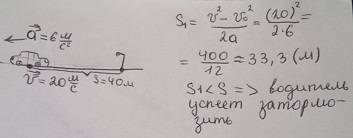 a⃗ = 6 м/с²
v⃗ = 20 м/с
S = 40м
S₁ = (v² − v₀²)/2a = (20)²/2·6 =
= 400/12 ≈ 33,3 (м)
S₁ < S => водитель
успеет затормо-
зить